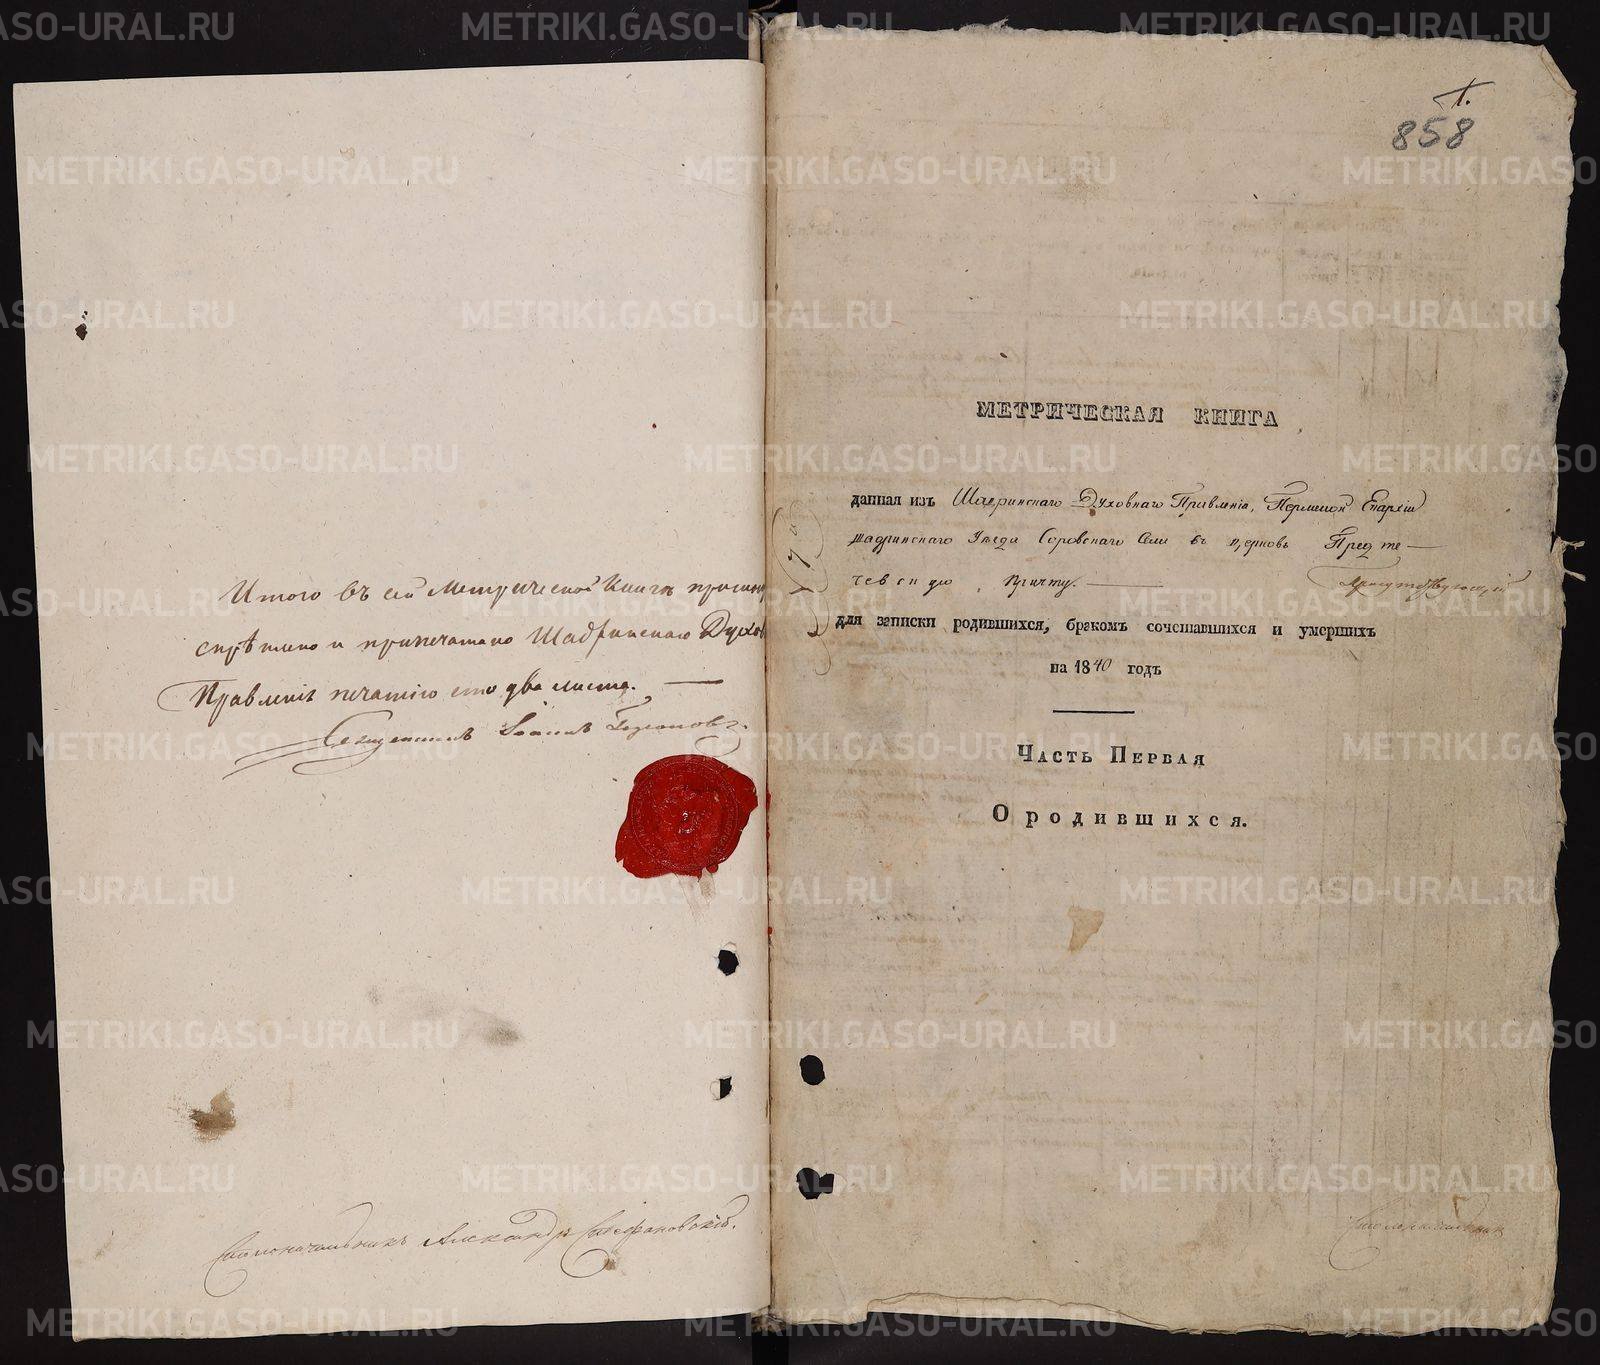 Итого въ сей Метрической Книгѣ прошну
скрѣплено и припечатано Шадринскаго Духов
Правленія печатію сто два листа.
Священникъ Іоаннъ
Столоначальникъ Александръ Стефановскій.
1.
858
МЕТРИЧЕСКАЯ КНИГА
данная изъ Шадринскаго Духовнаго Правленія, Пермской Епархіи
шадринскаго Уезда Соровскаго Села въ церковь Предте-
ченскую причту.
для записки родившихся, бракомъ сочетавшихся и умершихъ
на 1840 годъ
Часть Первая
О родившихся.
Столоначальник
METRIKI.GASO-URAL.RU